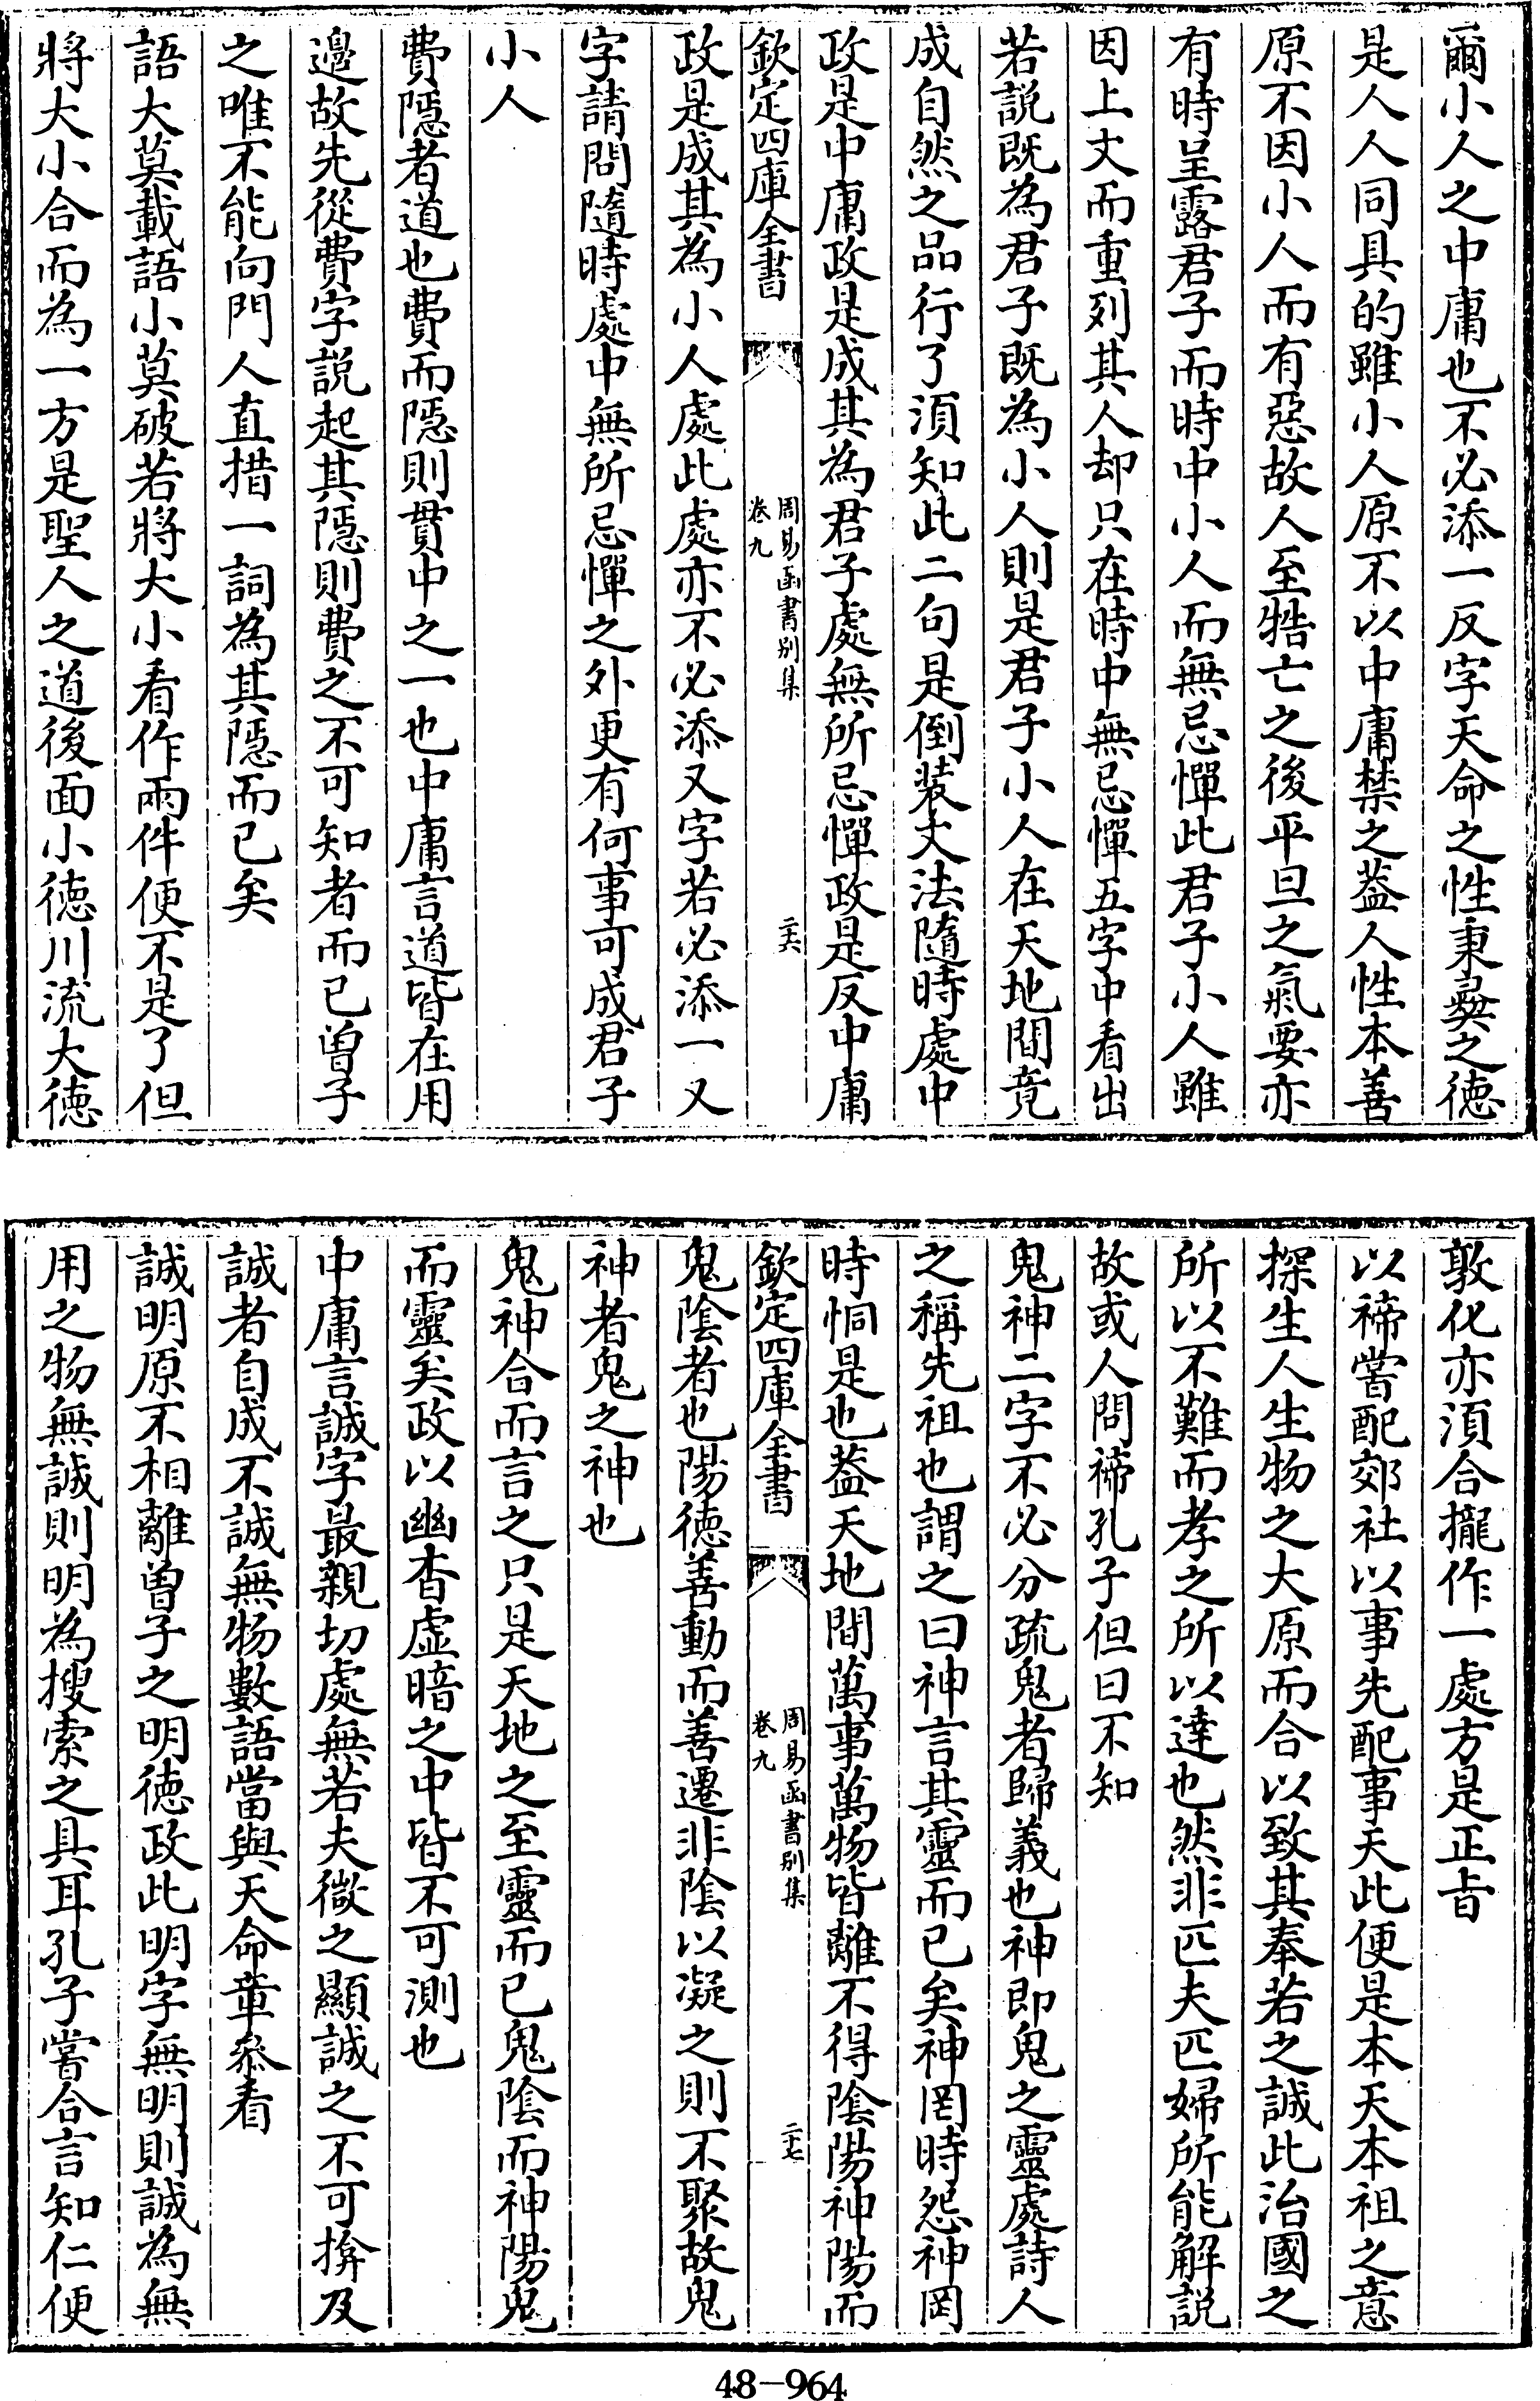 爾小人之中庸也不必添一反字天命之性秉彛之徳
是人人同具的雖小人原不以中庸禁之葢人性本善
原不因小人而有惡故人至牿亡之後平旦之氣要亦
有時呈露君子而時中小人而無忌憚此君子小人雖
因上文而重列其人却只在時中無忌憚五字中看出
若説既為君子既為小人則是君子小人在天地間竟
成自然之品行了須知此二句是倒装文法隨時處中
政是中庸政是成其為君子處無所忌憚政是反中庸
欽定四庫全書
周易函書别集
卷九
二六
政是成其為小人處此處亦不必添又字若必添一又
字請問隨時處中無所忌憚之外更有何事可成君子
小人
費隱者道也費而隱則貫中之一也中庸言道皆在用
邉故先從費字説起其隱則費之不可知者而已曽子
之唯不能向門人直措一詞為其隱而已矣
語大莫載語小莫破若將大小看作兩件便不是了但
將大小合而為一方是聖人之道後面小徳川流大徳
敦化亦須合攏作一處方是正㫖
以禘嘗配郊社以事先配事天此便是本天本祖之意
探生人生物之大原而合以致其奉若之誠此治國之
所以不難而孝之所以達也然非匹夫匹婦所能解説
故或人問禘孔子但曰不知
鬼神二字不必分疏鬼者歸義也神即鬼之靈處詩人
之稱先祖也謂之曰神言其靈而已矣神罔時怨神罔
時恫是也葢天地間萬事萬物皆離不得陰陽神陽而
欽定四庫全書
周易函書别集
卷九
二七
鬼陰者也陽徳善動而善遷非陰以凝之則不聚故鬼
神者鬼之神也
鬼神合而言之只是天地之至靈而已鬼陰而神陽鬼
而靈矣政以幽杳虛暗之中皆不可測也
中庸言誠字最親切處無若夫微之顯誠之不可揜及
誠者自成不誠無物數語當與天命章叅看
誠明原不相離曽子之明徳政此明字無明則誠為無
用之物無誠則明為搜索之具耳孔子嘗合言知仁便
48-964